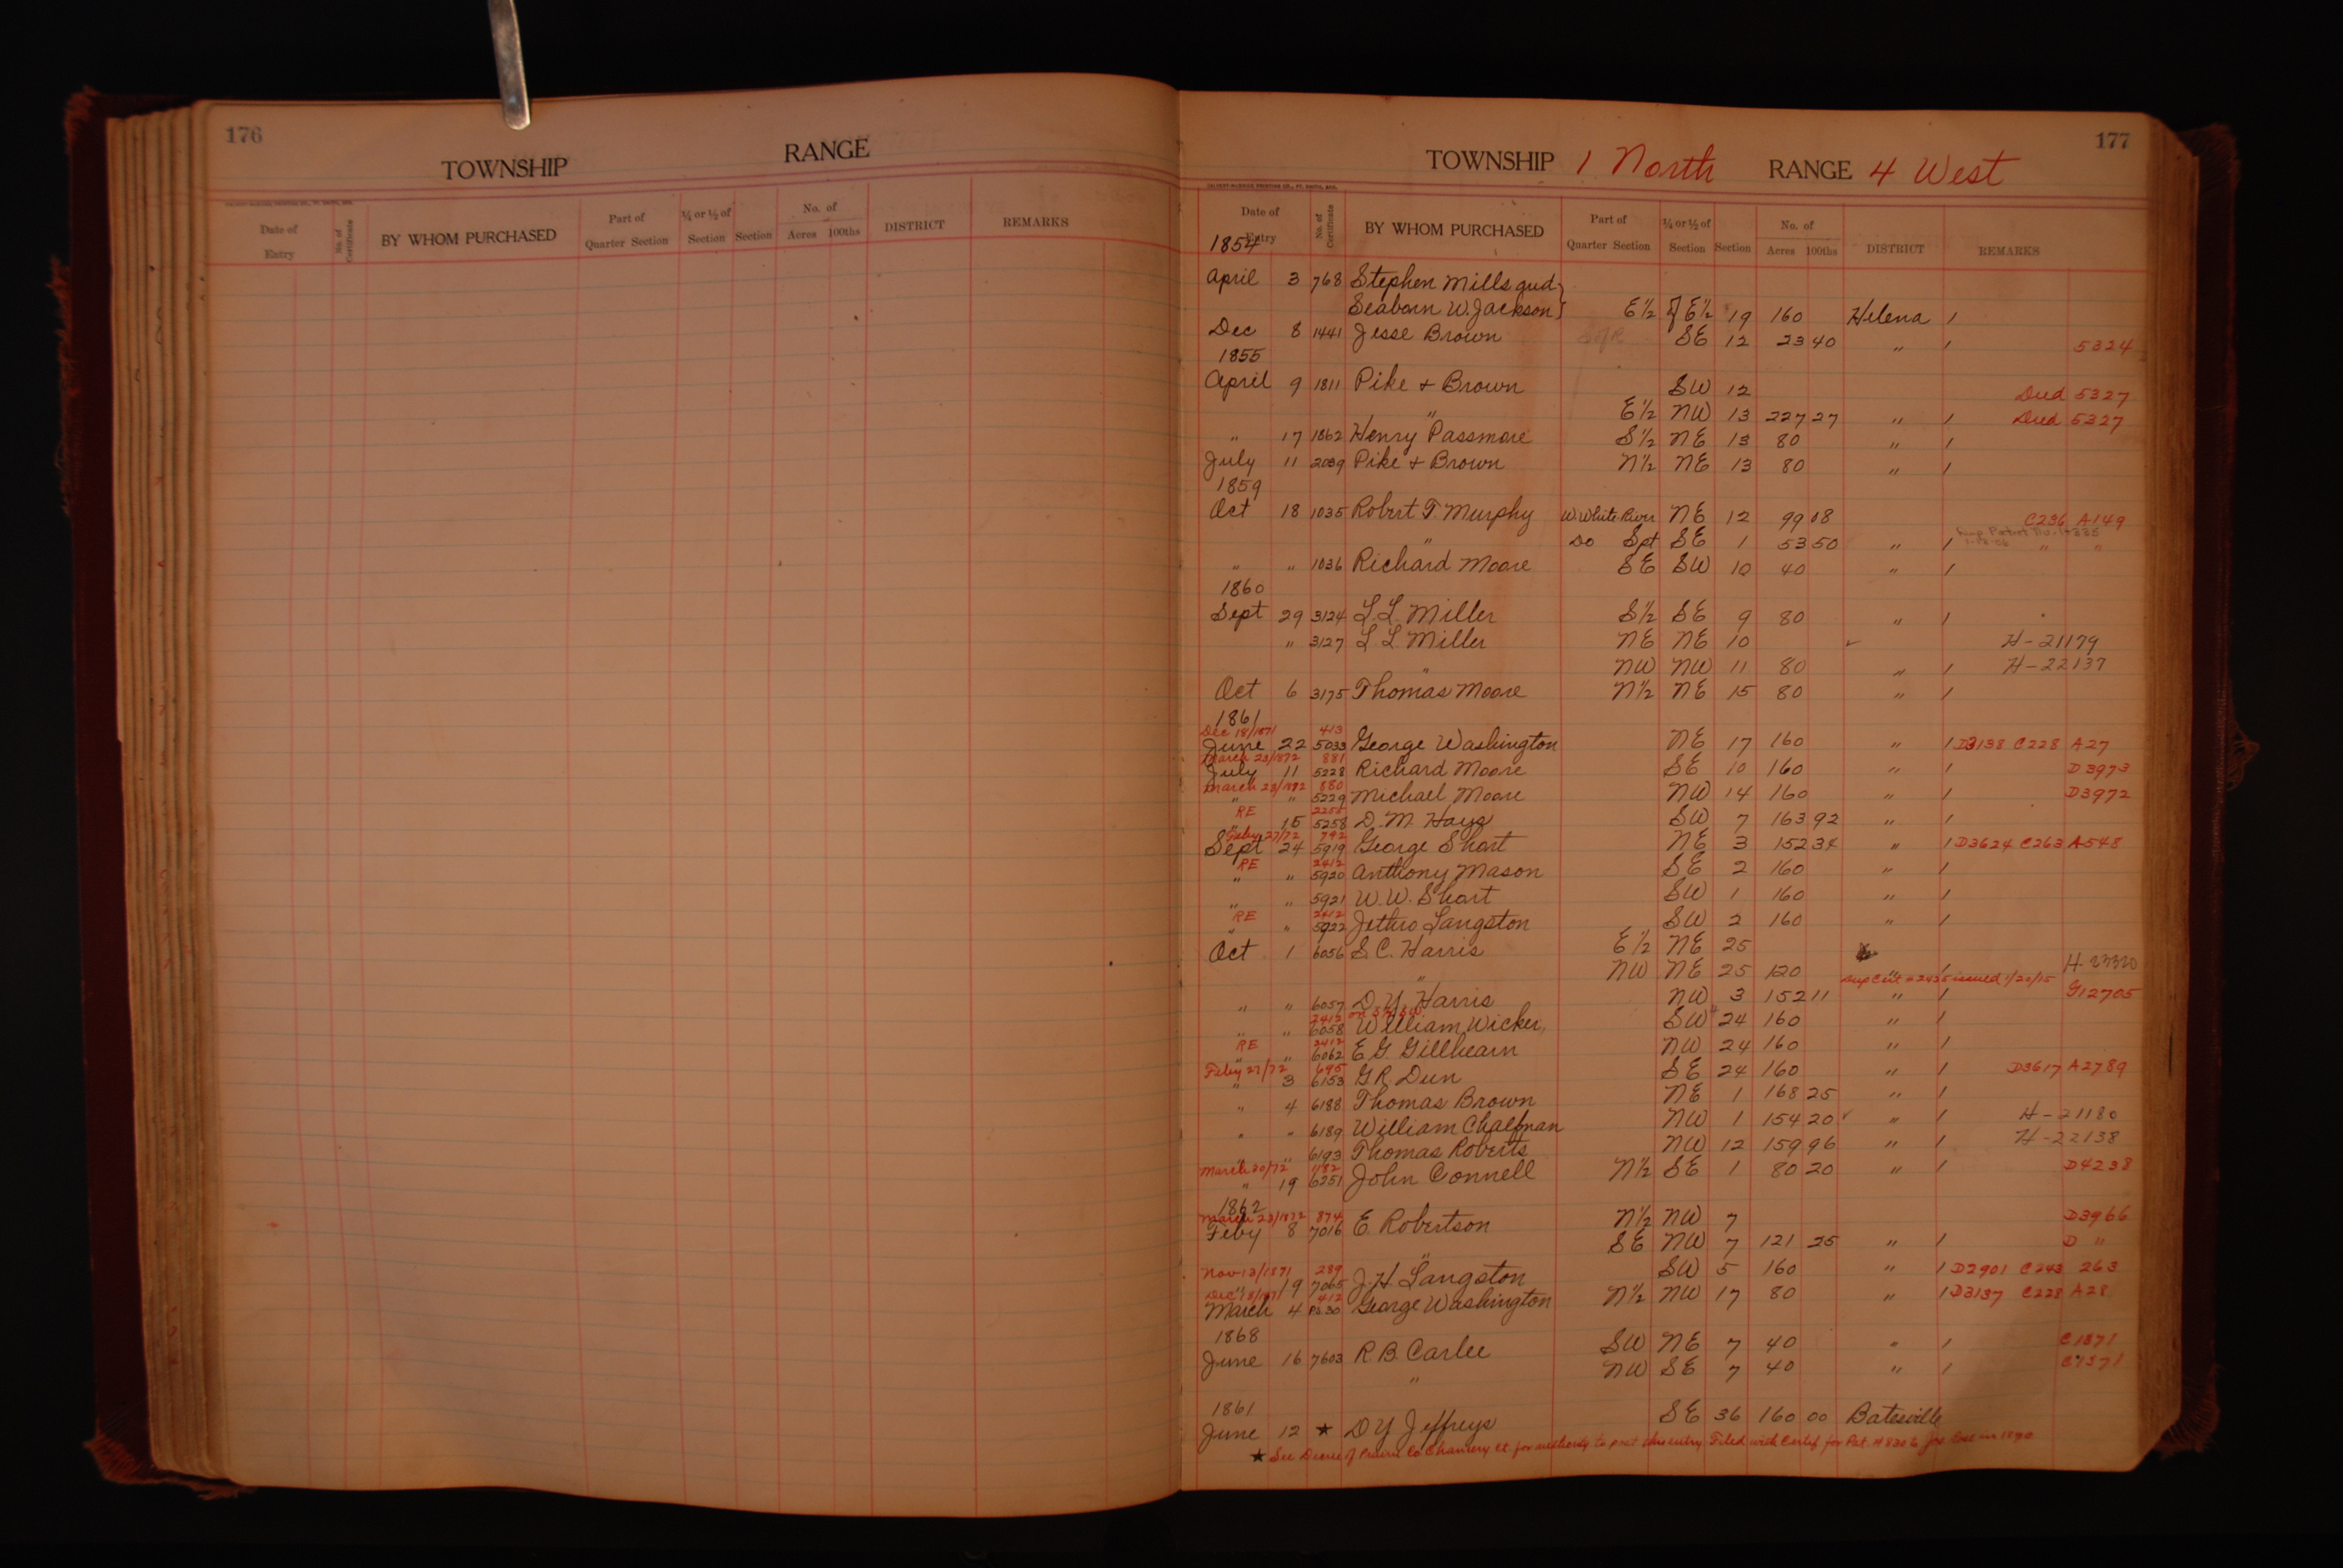 176
TOWNSHIP RANGE
Date of Entry No. of Certificate BY WHOM PURCHASED Part of Quarter Section ¼ or ½ of Section Section No. of Acres 100ths DISTRICT REMARKS
177
TOWNSHIP 1 North RANGE 4 West
Date of Entry No. of Certificate BY WHOM PURCHASED Part of Quarter Section ¼ or ½ of Section Section No. of Acres 100ths DISTRICT REMARKS
1854
April 3 768 Stephen Mills and }
Seaborn W. Jackson } E½ of E½ 19 160 Helena 1
Dec 8 1441 Jesse Brown SE 12 23 40 " 1 5324
1855
April 9 1811 Pike + Brown SW 12 Died 5327
" E½ NW 13 227 27 " 1 Died 5327
" 17 1862 Henry Passmore S½ NE 13 80 " 1
July 11 2039 Pike + Brown N½ NE 13 80 " 1
1859
Oct 18 1035 Robert T. Murphy W. White River NE 12 99 08 C236 A149
" Do Spt SE 1 53 50 " 1 " "
" " 1036 Richard Moore SE SW 10 40 " 1
1860
Sept 29 3124 L. L. Miller S½ SE 9 80 " 1
" 3127 L. L. Miller NE NE 10 H-21179
" NW NW 11 80 " 1 H-22137
Oct 6 3175 Thomas Moore N½ NE 15 80 " 1
1861
Dec 18/1871 413
June 22 5033 George Washington NE 17 160 " 1 D3138 C228 A27
March 23/1872 881
July 11 5228 Richard Moore SE 10 160 " 1 D3973
March 23/1872 880
" " 5229 Michael Moore NW 14 160 " 1 D3972
RE 2255
" 15 5258 D. M. Hays SW 7 163 92 " 1
Feby 27/72 792
Sept 24 5919 George Short NE 3 152 34 " 1 D3624 C263 A548
RE 2412
" " 5920 Anthony Mason SE 2 160 " 1
" " 5921 W. W. Short SW 1 160 " 1
RE 2412
" " 5922 Jethro Langston SW 2 160 " 1
Oct 1 6056 S. C. Harris E½ NE 25
" NW NE 25 120 " 1 H-23320
Dup Cert # 2435 issued 1/20/15
" " 6057 D. Y. Harris NW 3 152 11 " 1 G12705
2412
" " 6058 William Wicker SW 24 160 " 1
RE 2412
" " 6062 E. G. Gillhearn NW 24 160 " 1
Feby 27/72 695
" 3 6153 G R. Dun SE 24 160 " 1 D3617 A2789
" 4 6188 Thomas Brown NE 1 168 25 " 1
" " 6189 William Chalfman NW 1 154 20 " 1 H-21180
" " 6193 Thomas Roberts NW 12 159 96 " 1 H-22138
March 30/72 1182
" 19 6251 John Connell N½ SE 1 80 20 " 1 D4238
1862
March 23/1872 874
Feby 8 7016 E. Robertson N½ NW 7 D3966
" SE NW 7 121 25 " 1 D "
Nov 13/1871 289
" 19 7065 J. H. Langston SW 5 160 " 1 D2901 C243 263
Dec 18/1871 412
March 4 Po.30 George Washington N½ NW 17 80 " 1 D3137 C228 A28
1868
June 16 7603 R. B. Carlee SW NE 7 40 " 1 C1371
" NW SE 7 40 " 1 C1371
1861
June 12 ★ D Y Jeffreys SE 36 160 00 Batesville
★ See Decree of Prairie Co Chancery Ct. for authority to post this entry. Filed with Certif for Pat. H 8306